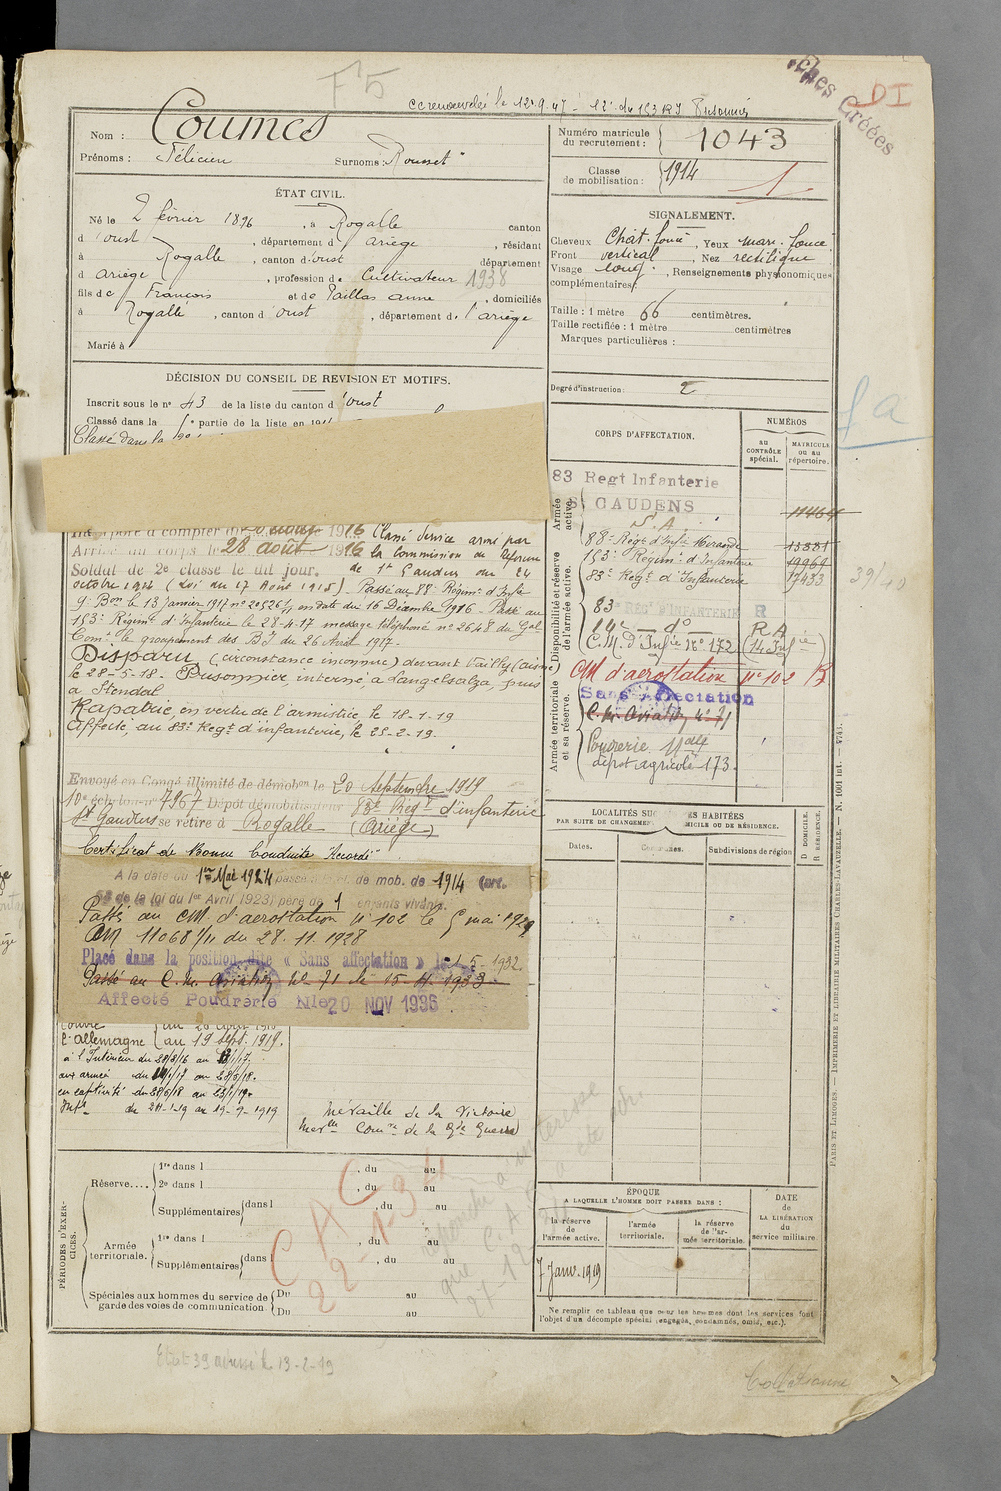 F5
le 12.9.47 - du 153 RI
ches Créées
DI
Nom : Coumes
Prénoms : Félicien Surnoms : Rousset
Numéro matricule du recrutement : 1043
Classe de mobilisation : 1914
1
ÉTAT CIVIL.
Né le 2 février 1896, à Rogalle canton
d'oust, département d ariège, résidant
à Rogalle, canton d'oust département
d ariège, profession de Cultivateur 1938
fils de François et de Paillas anne, domiciliés
à Rogalle, canton d'oust, département de l'ariège
Marié à
SIGNALEMENT.
Cheveux Chât. foncé, Yeux mar. foncé
Front vertical, Nez rectiligne
Visage long, Renseignements physionomiques
complémentaires :
Taille : 1 mètre 66 centimètres.
Taille rectifiée : 1 mètre centimètres
Marques particulières :
Degré d'instruction : 2
DÉCISION DU CONSEIL DE REVISION ET MOTIFS.
Inscrit sous le nº 43 de la liste du canton d'oust
Classé dans la 1e partie de la liste en 1914
Classé dans la
à compter du 1916 Classé Service armé par
Arrivé au corps le 28 août 1916 la Commission de Réforme
Soldat de 2e classe le dit jour. de St Gaudens du 24
octobre 1916 (Loi du 17 Août 1915). Passé au 88e Régimt d'Infie
9e Bon le 13 Janvier 1917 nº 20526/1 en date du 16 Décembre 1916. Passé au
153e Régimt d'Infanterie le 28-4-17 message téléphoné nº 2648 du Gal
Comt le groupement des Bons du 26 Août 1917.
Disparu (circonstance inconnue) devant Vailly (aisne)
le 28-5-18. Prisonnier interné à Langelsalza, puis
à Stendal
Rapatrié en vertu de l'armistice le 18-1-19
Affecté au 83e Regt d'infanterie, le 25-2-19.
Envoyé en Congé illimité de démobon le 20 septembre 1919
10e échelon nº 7967 Dépôt démobilisateur 83e Regt d'infanterie
St Gaudens se retire à Rogalle (Ariège)
Certificat de Bonne Conduite "Accordé"
A la date du 1er Mai 1924 passé de mob. de 1914 (art.
58 de la loi du 1er Avril 1923) père de 1 enfants vivants.
Passé au CM d'aerostation nº 102 le 5 mai 1929
DM 11068 1/11 du 28.11.1928
Placé dans la position dite « Sans affectation » le 1-5-1932.
Passé au C.M. Aviation Nº 71 le 15-4-1933
Affecté Poudrerie Nle 20 NOV 1936
l'allemagne au 19 sept. 1919.
à l'Intérieur du 28/8/16 au
aux armées au 28/5/18.
en captivité du 28/5/18 au
au 19-9-1919
Médaille de la Victoire
Comve de la Gde Guerre
CORPS D'AFFECTATION.
NUMÉROS
au CONTRÔLE spécial.
MATRICULE ou au répertoire.
Armée active.
83 Regt Infanterie
St GAUDENS 11464
S.A.
88e Regt d'Infie Mirande 13381
153e Régimt d'Infanterie 19969
83e Regt d'Infanterie 17433
39/40
Disponibilité et réserve de l'armée active.
83e REGt D'INFANTERIE R
14e — do — R A
C.M. D'Infie Nº 172 (14 Infie)
CM d'aerostation nº 102
Armée territoriale et sa réserve.
Sans affectation
C.M. Aviation nº 71
Poudrerie Nale
dépot agricole 173.
LOCALITÉS SUCCESSIVES HABITÉES
PAR SUITE DE CHANGEMENT DE DOMICILE OU DE RÉSIDENCE.
Dates.
Communes.
Subdivisions de région
D DOMICILE.
R RÉSIDENCE.
PÉRIODES D'EXERCICES.
Réserve....
1re dans l , du au
2e dans l , du au
Supplémentaires dans l , du au
Armée territoriale.
1re dans l , du au
Supplémentaires dans l , du au
Spéciales aux hommes du service de garde des voies de communication
Du au
Du au
CAC
22-1-34
ÉPOQUE
A LAQUELLE L'HOMME DOIT PASSER DANS :
la réserve de l'armée active.
l'armée territoriale.
la réserve de l'armée territoriale.
DATE DE LA LIBÉRATION du service militaire.
7 Janv. 1919
Ne remplir ce tableau que pour les hommes dont les services font
l'objet d'un décompte spécial (engagés, condamnés, omis, etc.).
PARIS ET LIMOGES. — IMPRIMERIE ET LIBRAIRIE MILITAIRES CHARLES-LAVAUZELLE. — N. 1001 int.
Etat 39 adressé le 13-2-19